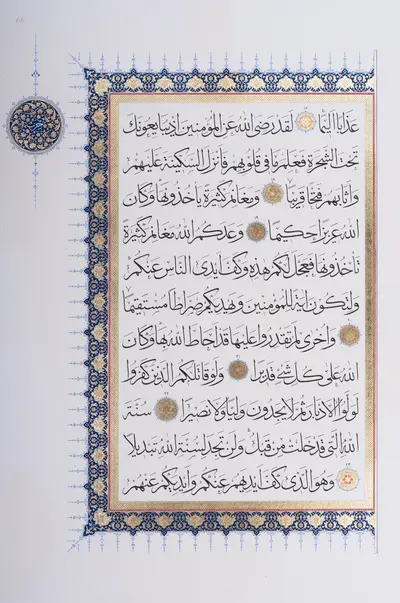 عَذَابًا أَلِيمًا لَقَدْ رَضِيَ اللَّهُ عَنِ الْمُؤْمِنِينَ إِذْ يُبَايِعُونَكَ
تَحْتَ الشَّجَرَةِ فَعَلِمَ مَا فِي قُلُوبِهِمْ فَأَنْزَلَ السَّكِينَةَ عَلَيْهِمْ
وَأَثَابَهُمْ فَتْحًا قَرِيبًا وَمَغَانِمَ كَثِيرَةً يَأْخُذُونَهَا وَكَانَ
اللَّهُ عَزِيزًا حَكِيمًا وَعَدَكُمُ اللَّهُ مَغَانِمَ كَثِيرَةً
تَأْخُذُونَهَا فَعَجَّلَ لَكُمْ هَذِهِ وَكَفَّ أَيْدِيَ النَّاسِ عَنْكُمْ
وَلِتَكُونَ آيَةً لِلْمُؤْمِنِينَ وَيَهْدِيَكُمْ صِرَاطًا مُسْتَقِيمًا
وَأُخْرَى لَمْ تَقْدِرُوا عَلَيْهَا قَدْ أَحَاطَ اللَّهُ بِهَا وَكَانَ
اللَّهُ عَلَى كُلِّ شَيْءٍ قَدِيرًا وَلَوْ قَاتَلَكُمُ الَّذِينَ كَفَرُوا
لَوَلَّوُا الْأَدْبَارَ ثُمَّ لَا يَجِدُونَ وَلِيًّا وَلَا نَصِيرًا سُنَّةَ
اللَّهِ الَّتِي قَدْ خَلَتْ مِنْ قَبْلُ وَلَنْ تَجِدَ لِسُنَّةِ اللَّهِ تَبْدِيلًا
وَهُوَ الَّذِي كَفَّ أَيْدِيَهُمْ عَنْكُمْ وَأَيْدِيَكُمْ عَنْهُمْ